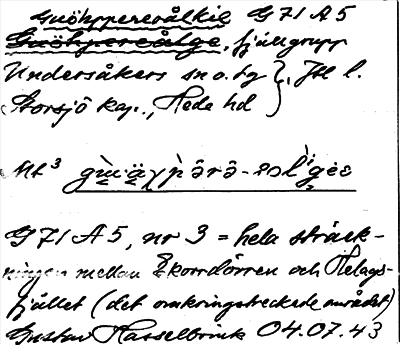 Guöhpperevålkie G 71 A 5
Guöhperevålge, fjällgrupp
Undersåkers sn o. tg }, Jtl l.
Storsjö kap., Hede hd
Mt³
G 71 A 5, nr 3 = hela sträck-
ningen mellan Ekorrdörren och Helags-
fjället (det omkringstreckade området)
Gustav Hasselbrink 04.07.43